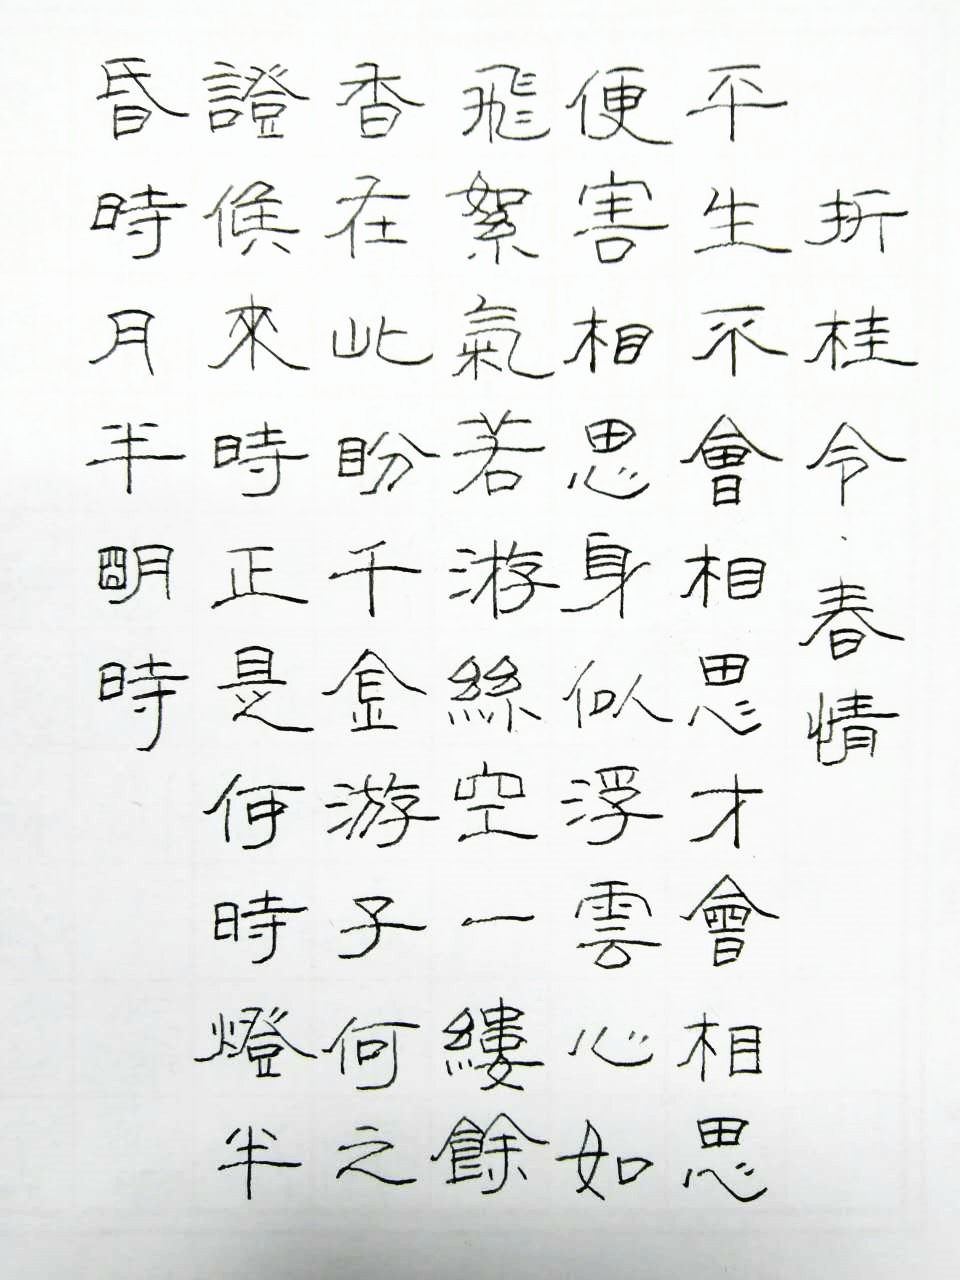 折桂令·春情
平生不會相思才會相思
便害相思身似浮雲心如
飛絮氣若游絲空一縷餘
香在此盼千金游子何之
證候來時正是何時燈半
昏時月半明時